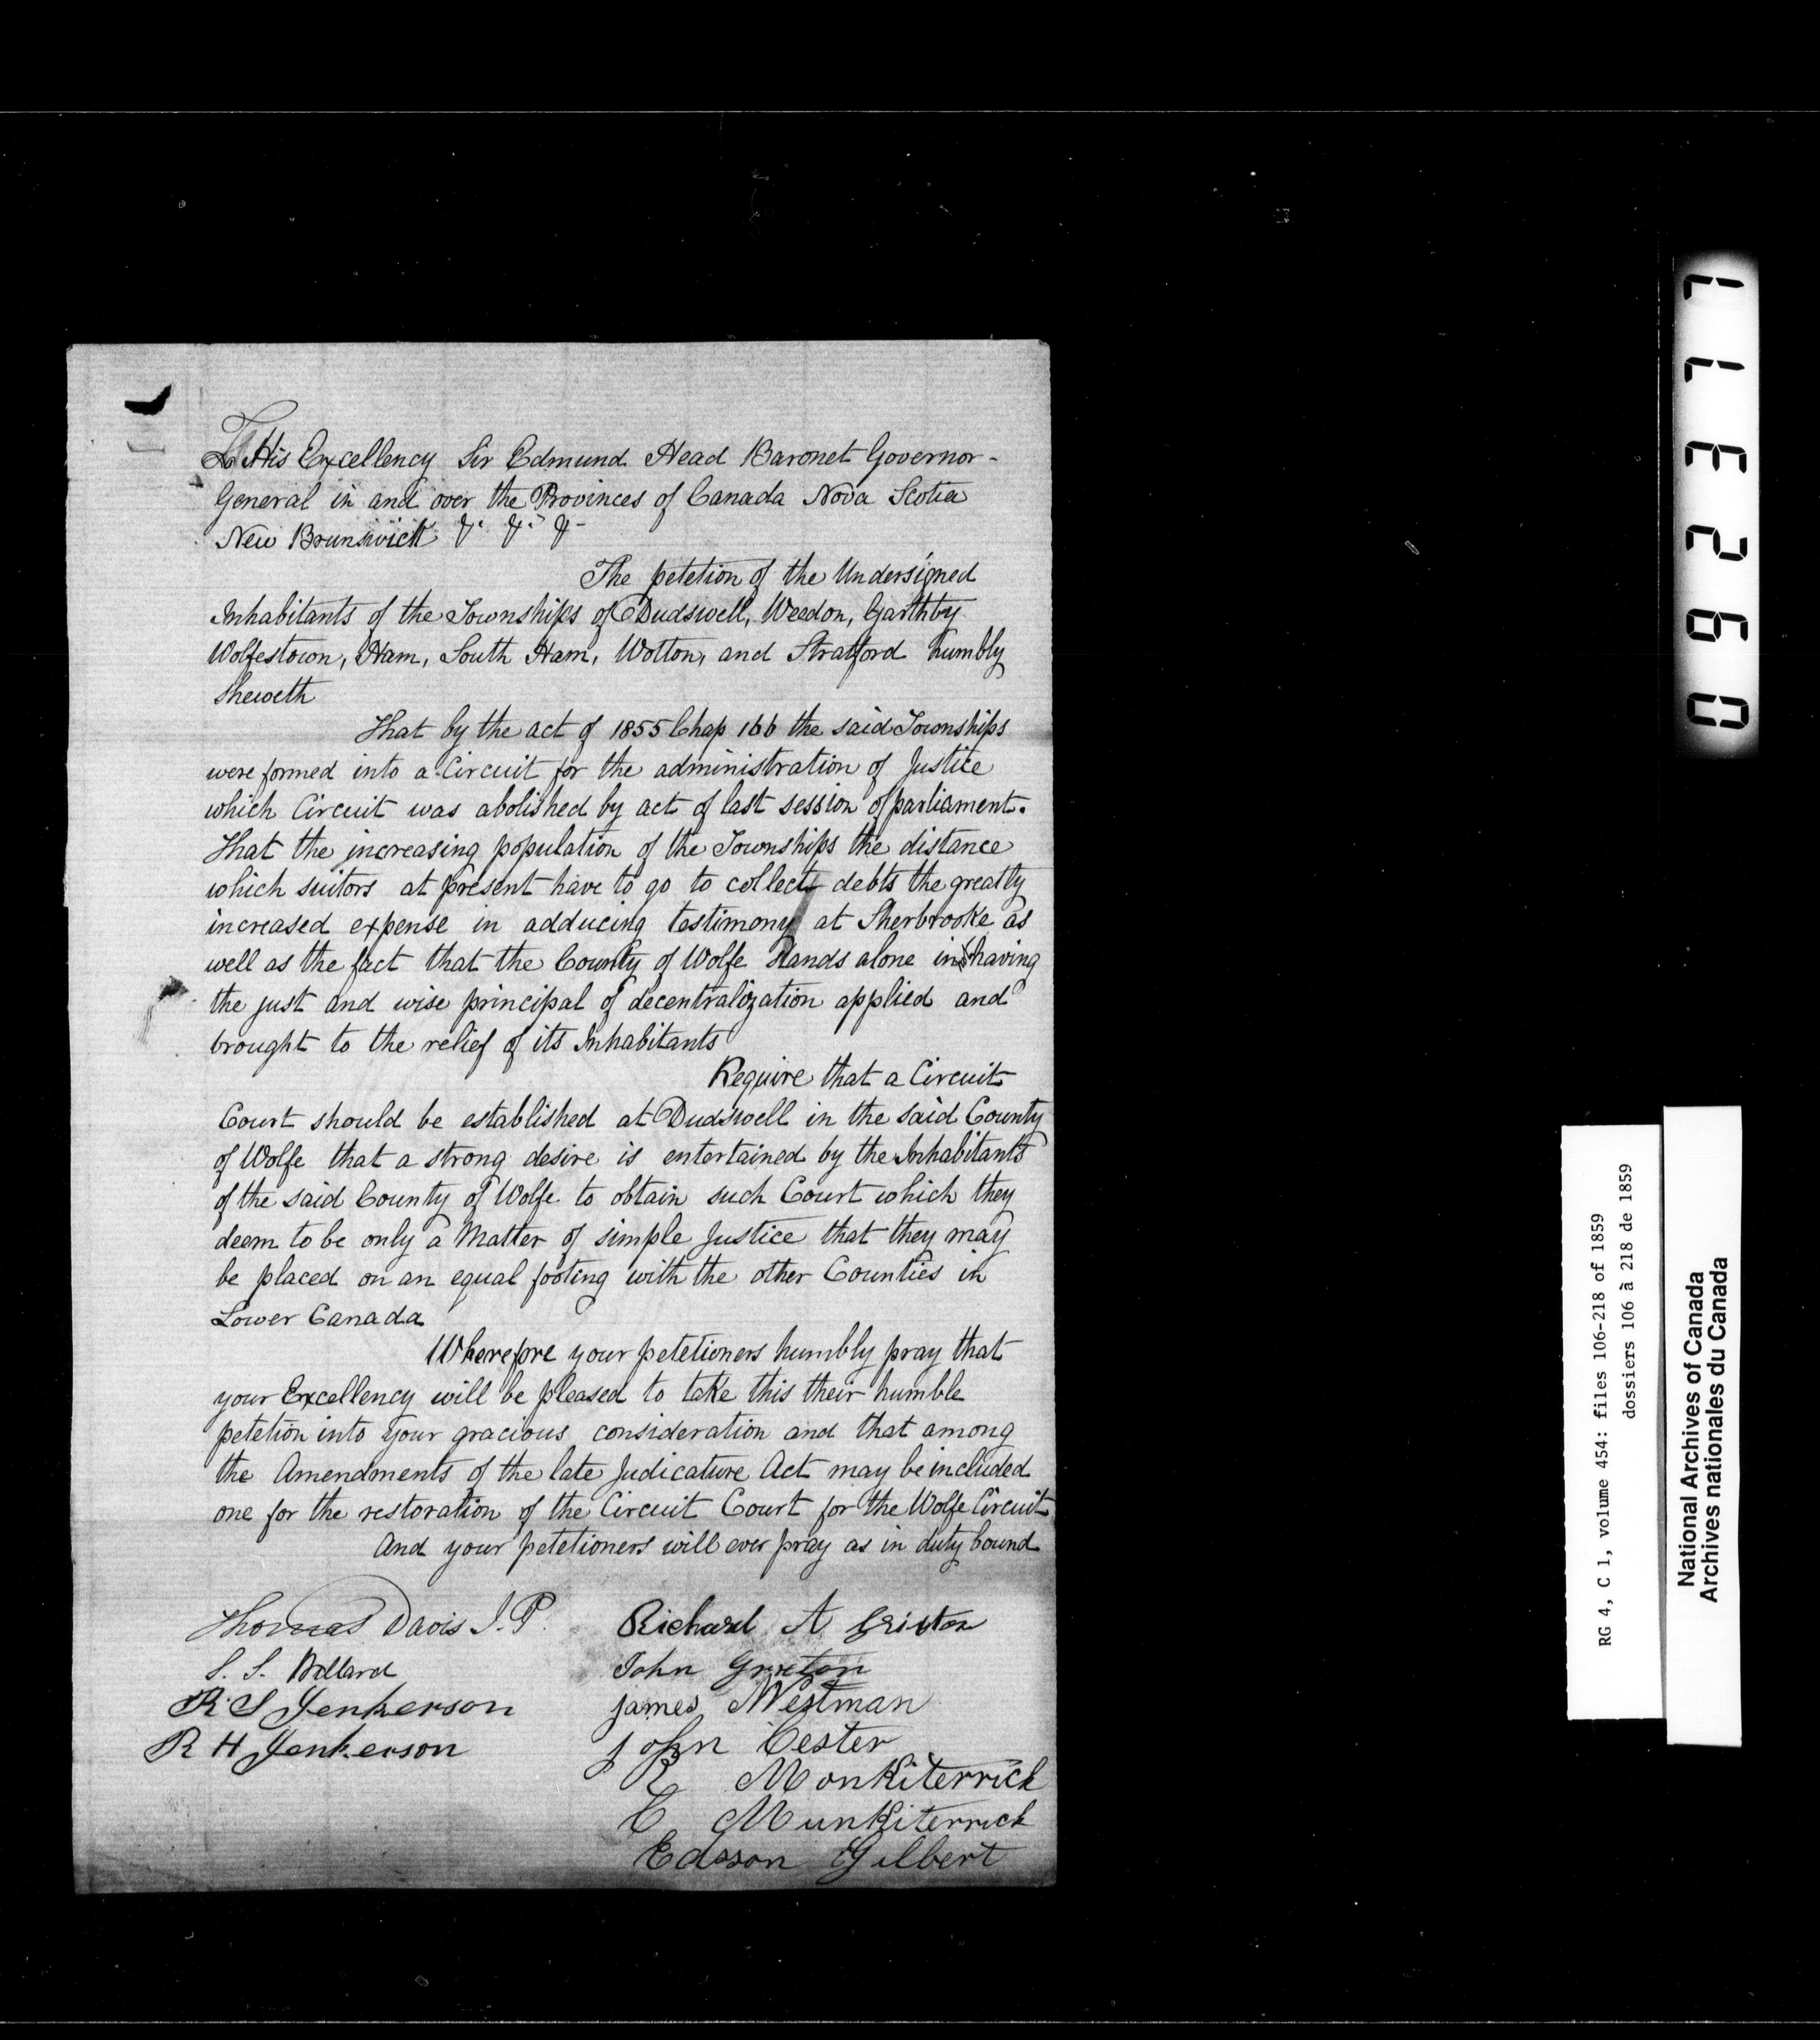 To His Excellency Sir Edmund Head Baronet Governor-
General in and over the Provinces of Canada Nova Scotia
New Brunswick &. &. &-
The petetion of the Undersigned
Inhabitants of the Townships of Dudswell, Weedon, Garthby
Wolfestown, Ham, South Ham, Wotton, and Stratford humbly
Sheweth
That by the act of 1855 Chap 166 the said Townships
were formed into a Circuit for the administration of Justice
which Circuit was abolished by act of last session of parliament.
That the increasing population of the Townships the distance
which suitors at present have to go to collect debts the greatly
increased expense in adducing testimony at Sherbrooke as
well as the fact that the County of Wolfe Stands alone in having
the just and wise principal of decentralization applied and
brought to the relief of its Inhabitants
Require that a Circuit
Court should be established at Dudswell in the said County
of Wolfe that a strong desire is entertained by the Inhabitants
of the said County of Wolfe to obtain such Court which they
deem to be only a Matter of simple Justice that they may
be placed on an equal footing with the other Counties in
Lower Canada
Wherefore your petetioners humbly pray that
your Excellency will be pleased to take this their humble
petetion into your gracious consideration and that among
the Amendments of the late Judicature Act may be included
one for the restoration of the Circuit Court for the Wolfe Circuit
And your petetioners will ever pray as in duty bound
Thomas Davis J.P.
S. S. Willard
R S Jenkerson
R H Jenkerson
Richard A
John
James Westman
John Cester
R MonKiterrick
C MunKiterrick
Edsson Gilbert
092377
RG 4, C 1, volume 454: files 106-218 of 1859
dossiers 106 à 218 de 1859
National Archives of Canada
Archives nationales du Canada